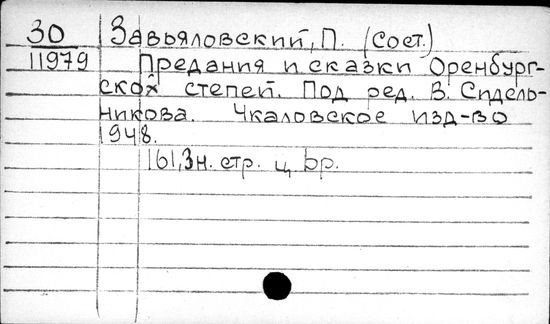 30 Завьяловский, П. (сост.)
11979 Предания и сказки Оренбург-
ской степей. Под ред. В. Сидель-
никова. Чкаловское изд-во
1948.
161, 3 н. стр. ц. 6р.